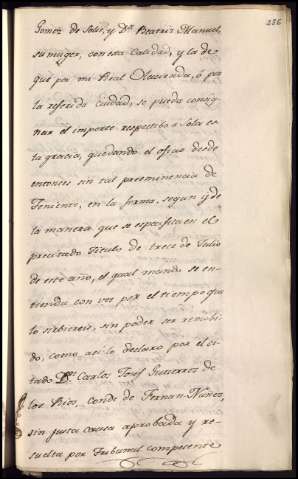 286
Gomez de Solis, y Dª. Beatriz Manuel,
su muger, con esta Calidad, y la de
que por mi Real Hacienda, ó por
la referida Ciudad, se pueda consig-
nar el importe respectibo á sola es-
ta gracia, quedando el oficio desde
entonces sin tal preeminencia de
Teniente, en la forma, segun y de
la manera que se especifica en el
precitado Titulo de trece de Julio
de este año, el qual mando se en-
tienda con vos por el tiempo que
lo sirbiereis, sin poder ser removi-
do, como asi lo declaro por el ci-
tado Dⁿ. Carlos Josef Gutierrez de
los Rios, Conde de Fernan-Nuñez,
sin justa causa aprobada y re-
suelta por Tribunal competente